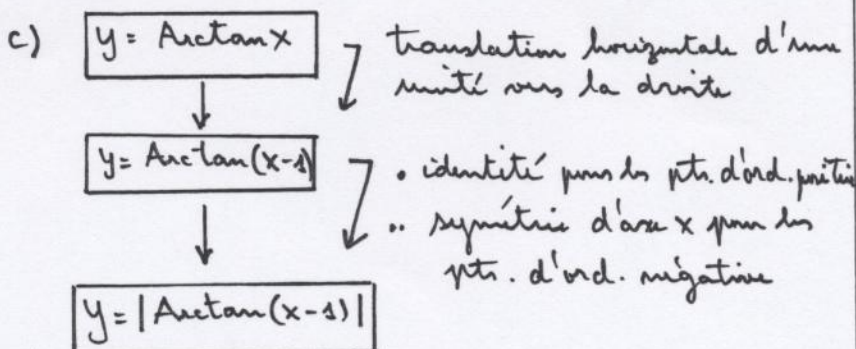 c) y = Arctan x
translation horizontale d'une
unité vers la droite
y = Arctan(x-1)
• identité pour les pts. d'ord. positive
•• symétrie d'axe x pour les
pts. d'ord. négative
y = |Arctan(x-1)|